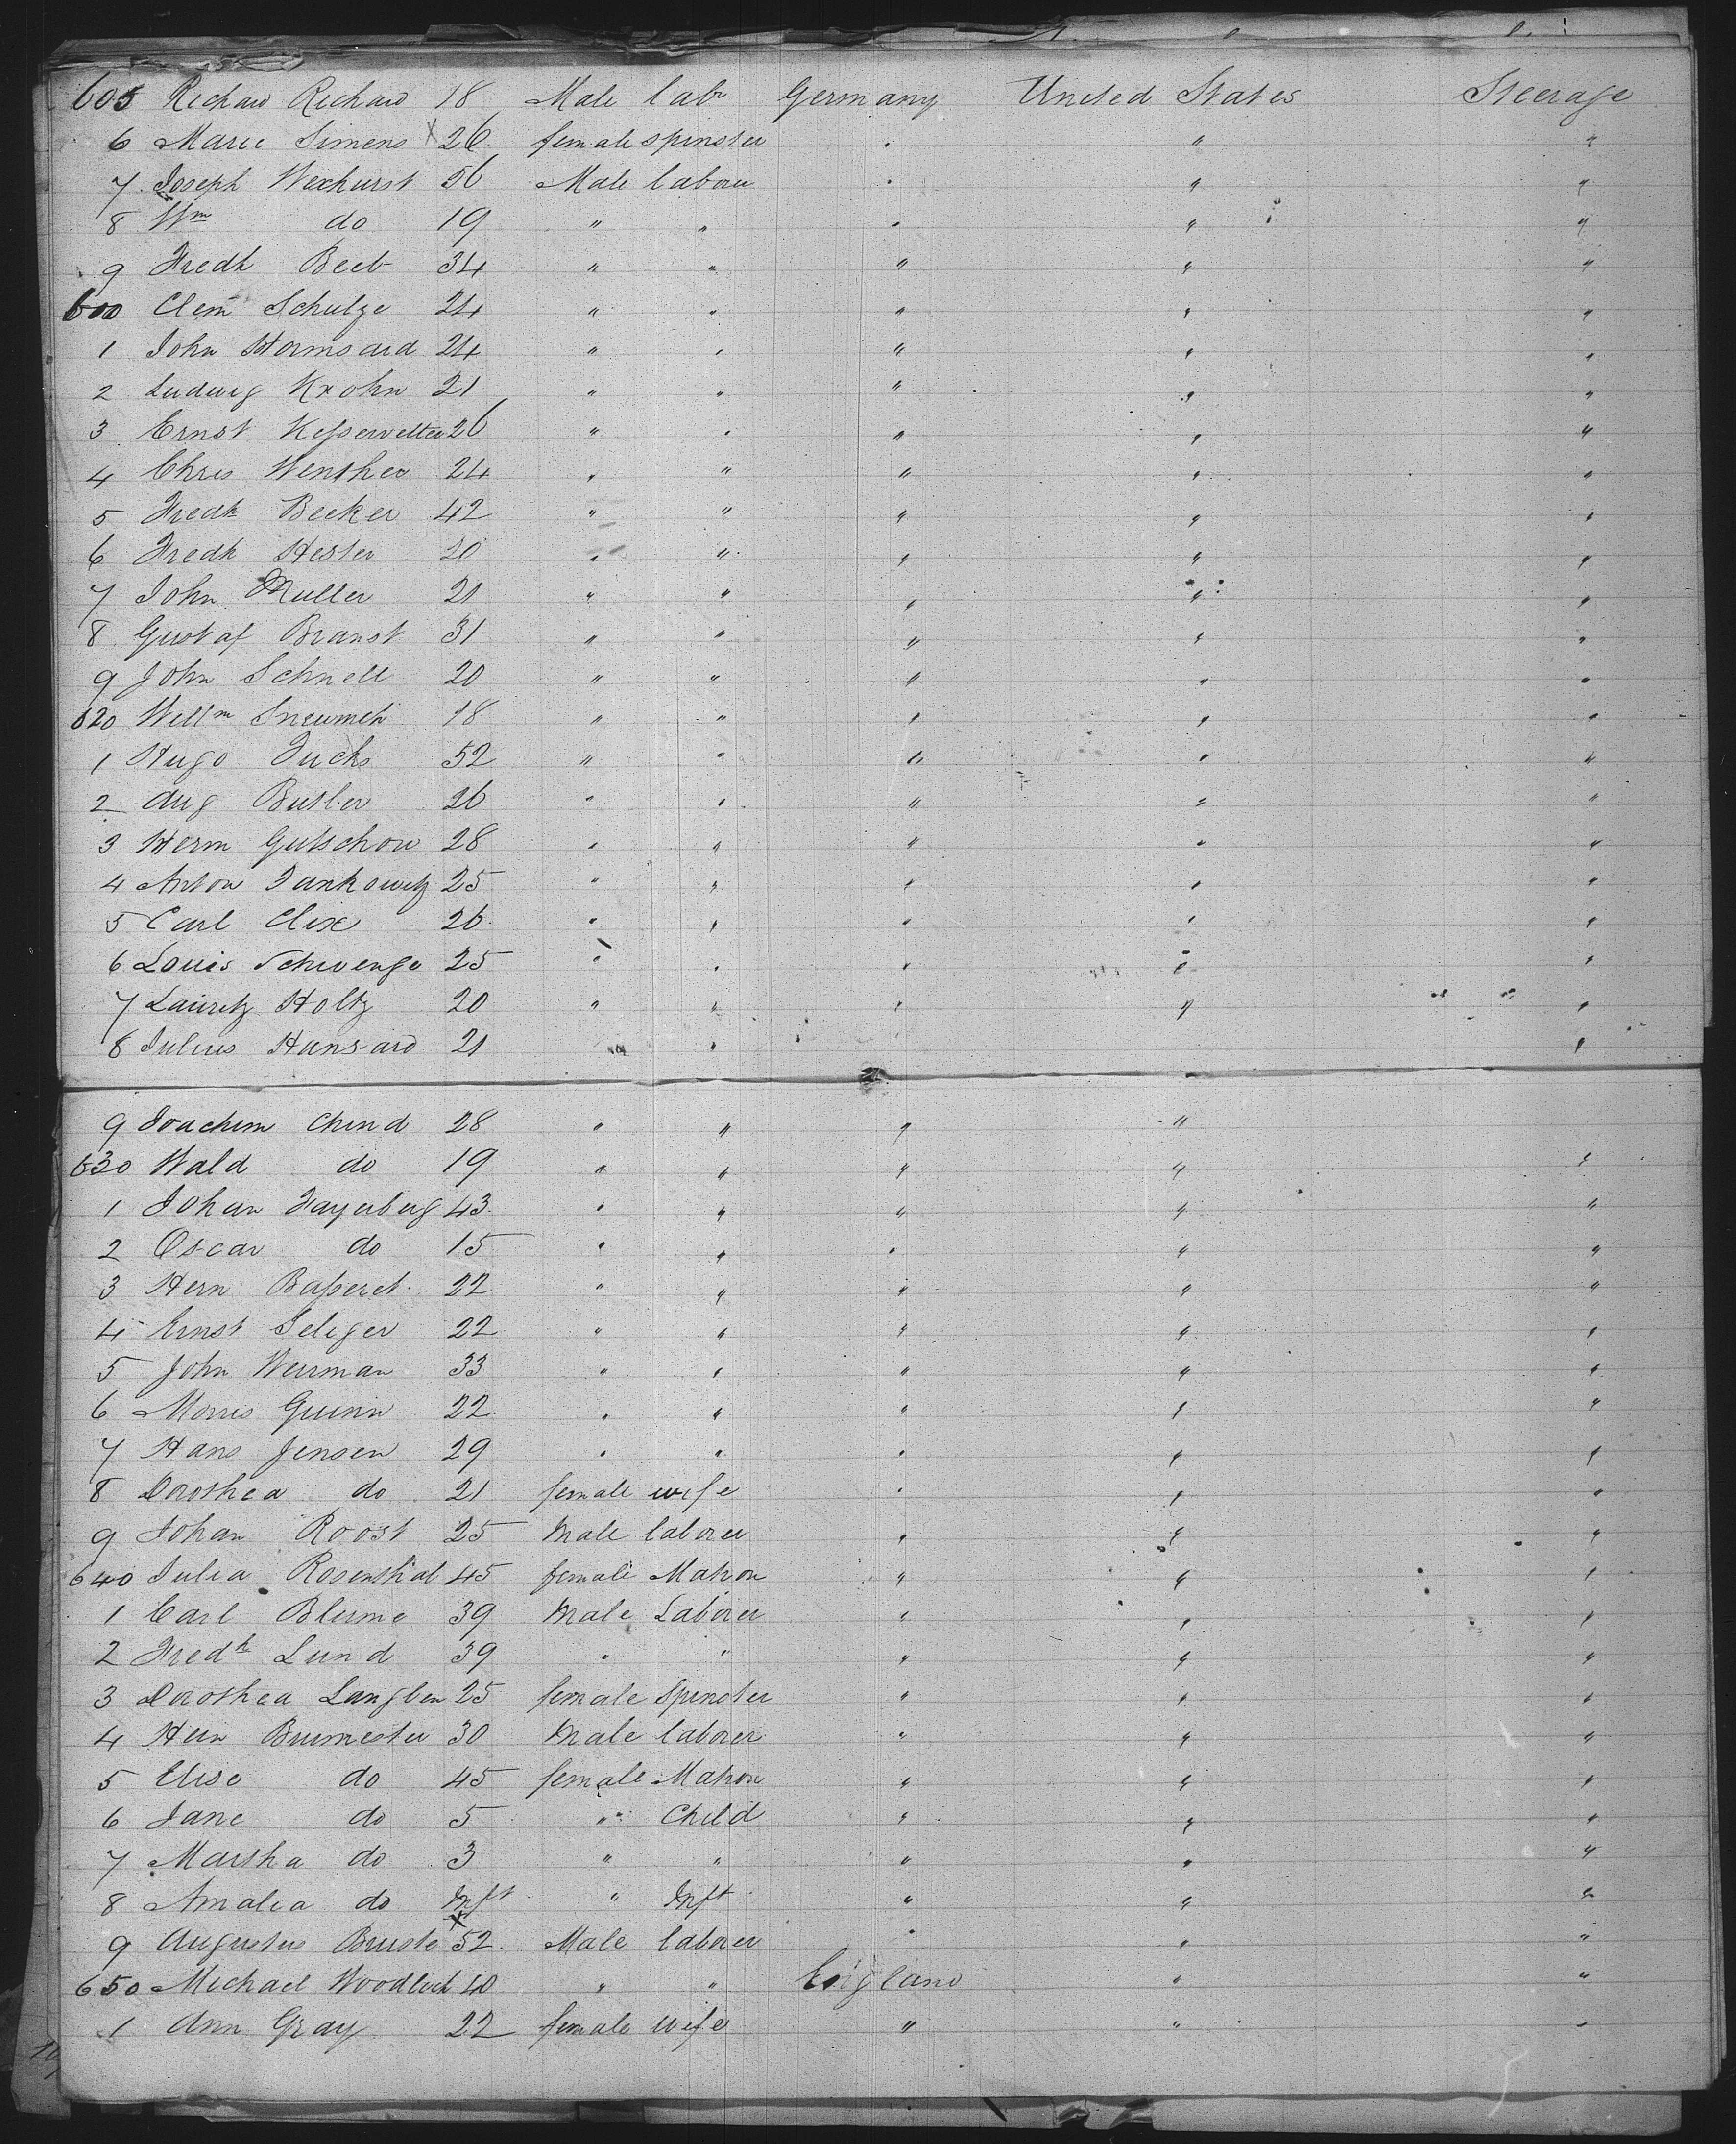 605 Richard Richard 18 Male labr Germany United States Steerage
6 Marie Simens x 26 female spinster " " "
7 Joseph Wexhurst 56 Male laborer " " "
8 Wm do 19 " " " " "
9 Fredk Beeb 34 " " " " "
600 Clem Schulze 24 " " " " "
1 John 24 " " " " "
2 Ludwig Krohn 21 " " " " "
3 Ernst Kesserwetter 26 " " " " "
4 Chris Wenther 24 " " " " "
5 Fredk Becker 42 " " " " "
6 Fredk Hester 20 " " " " "
7 John Muller 21 " " " " "
8 Gustaf Branst 31 " " " " "
9 John Schnell 20 " " " " "
620 Willm 18 " " " " "
1 Hugo Fuchs 52 " " " " "
2 Aug Butler 26 " " " " "
3 Herm Gutschow 28 " " " " "
4 Anton Jankowitz 25 " " " " "
5 Carl Clix 26 " " " " "
6 Louis Schwenge 25 " " " " "
7 Lauritz Holtz 20 " " " " "
8 Julius Hansard 21 " "
9 Joachim Chind 28 " " " "
630 Wald do 19 " " " " "
1 Johan Fayerberg 43 " " " " "
2 Oscar do 15 " " " " "
3 Hern Basseret 22 " " " " "
4 Ernst Seliger 22 " " " " "
5 John Weirman 33 " " " " "
6 Morris Guinn 22 " " " " "
7 Hans Jensen 29 " " " " "
8 Dorothea do 21 female wife " " "
9 Johan Roost 25 Male laborer " " "
640 Julia Rosenthal 45 female Matron " " "
1 Carl Blume 39 Male Laborer " " "
2 Fredk Lund 39 " " " " "
3 Dorothea Langben 25 female Spinster " " "
4 Hein Burmester 30 Male laborer " " "
5 Elise do 45 female Matron " " "
6 Jane do 5 " Child " " "
7 Martha do 3 " " " " "
8 Amalia do Inft " Inft " " "
9 Augustus Bruste x 52 Male laborer " " "
650 Michael Woodlock 40 " " England " "
1 Ann Gray 22 female wife " " "